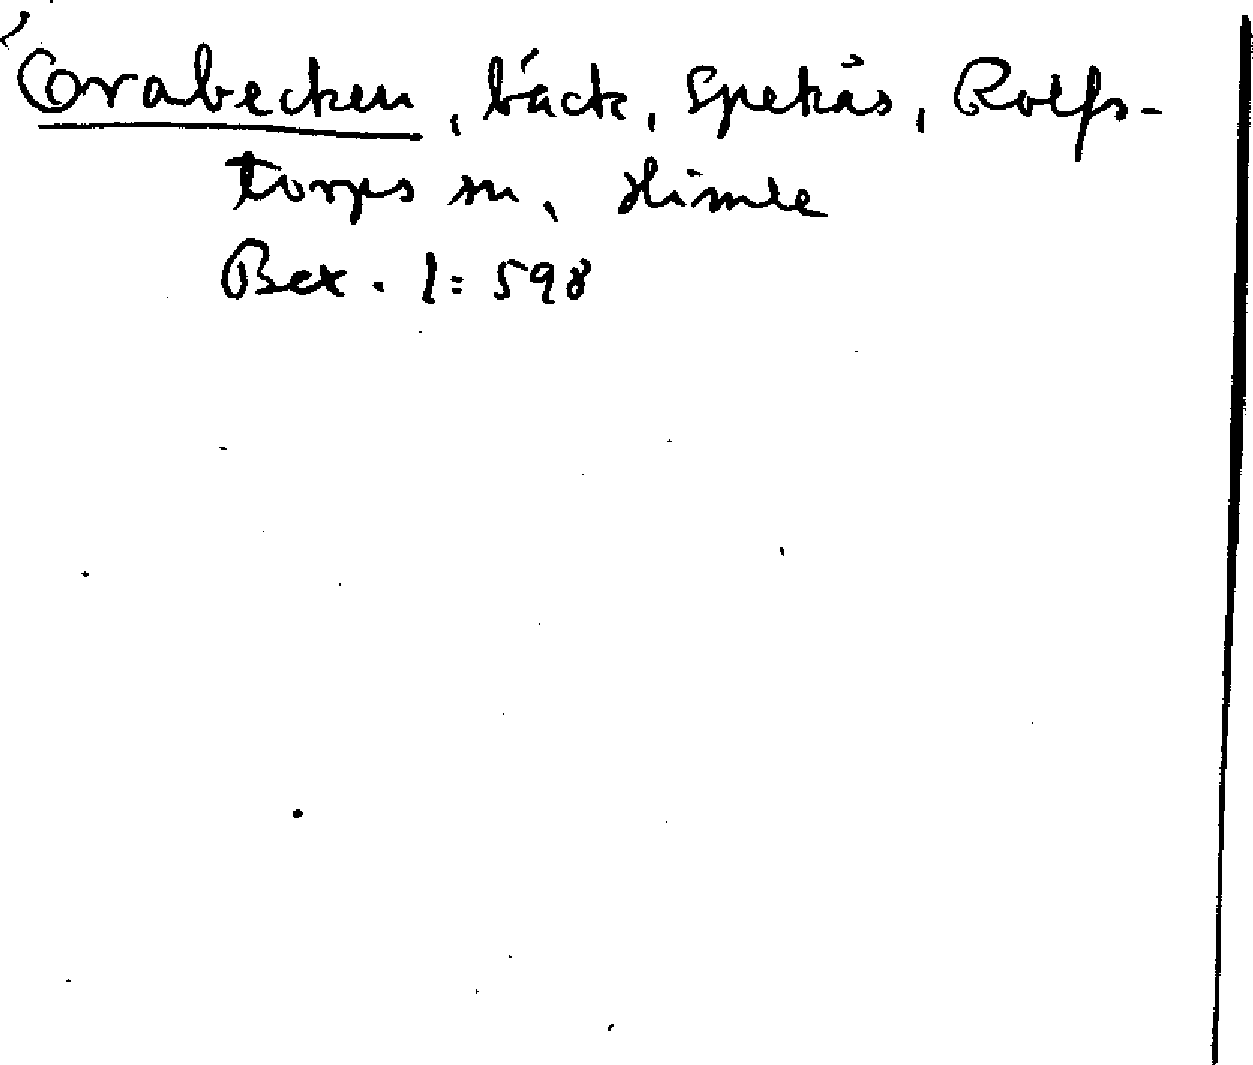 Corabecken, bäck, Spekås, Rolfs-
torps sn, Himle
Bex. 1:598